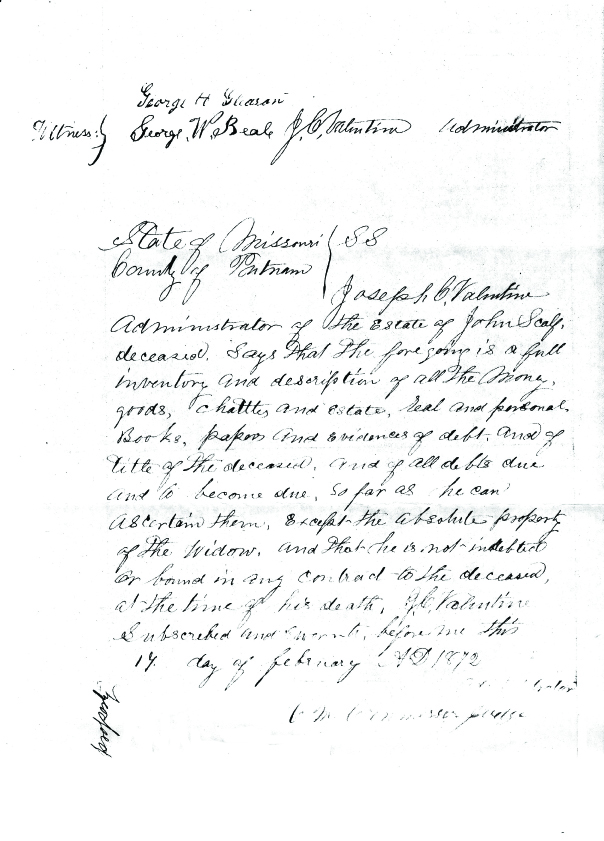 George H Gleason
Witness: } George W. Beale J. C. Valentine Administrator
State of Missouri } SS
County of Putnam
Joseph C. Valentine
Administrator of the Estate of John Scalf,
deceased, Says that the foregoing is a full
inventory and description of all the Money,
goods, Chattles and estate, Real and personal
Books, papers and evidences of debt, and of
title of the deceased, and of all debts due
and to become due, So far as he can
ascertain them, Except the absolute property
of the Widow, and that he is not indebted
or bound in any contract to the deceased,
at the time of his death, J C Valentine
Subscribed and before me this
day of February AD 1872
judge